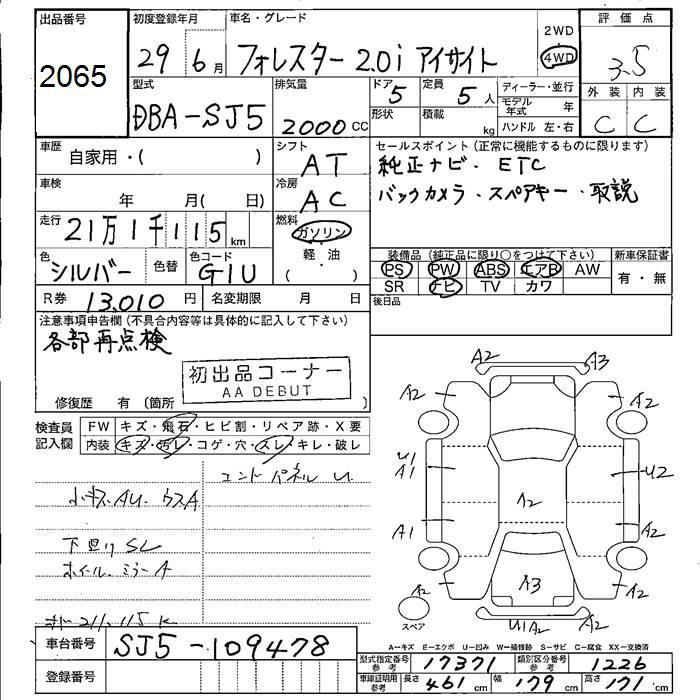 出品番号 初度登録年月 車名・グレード 2WD 評価点
2065 29 6月 フォレスター 2.0i アイサイト 4WD 3.5
型式 排気量 ドア 定員 ディーラー・並行 外装 内装
DBA-SJ5 2000cc 5 5人 モデル年式 年 C C
形状 積載 kg ハンドル 左・右
車歴 シフト セールスポイント (正常に機能するものに限ります)
自家用・( ) AT 純正ナビ・ETC
車検 冷房 バックカメラ・スペアキー・取説
年 月( 日) AC
走行 燃料
21万1千115km ガソリン
色 色替 色コード 軽・油 装備品 (純正品に限り○をつけて下さい) 新車保証書
シルバー G1U ( ) PS PW ABS エアB AW 有・無
R券 13,010円 名変期限 月 日 SR ナビ TV カワ
後日品
注意事項申告欄 (不具合内容等は具体的に記入して下さい)
各部再点検
初出品コーナー
AA DEBUT
修復歴 有 (箇所 )
検査員 FW キズ・飛石・ヒビ割・リペア跡・X要
記入欄 内装 キズ・汚レ・コゲ・穴・スレ・キレ・破レ
パネル U
小キズ AU ウスA
下廻り SL
ホイール ミラーA
211,115K
A2 A3
A2 A2
U1
A1 U2
A2
A1 A2
A2 A3 A2
スペア U1 A2 A2
A−キズ E−エクボ U−凹み W−補修跡 S−サビ C−腐食 XX−交換済
車台番号 SJ5-109478
型式指定番号 参考 17371 類別区分番号 参考 1226
登録番号
車庫証明用 参考 長さ 461cm 幅 179cm 高さ 171cm